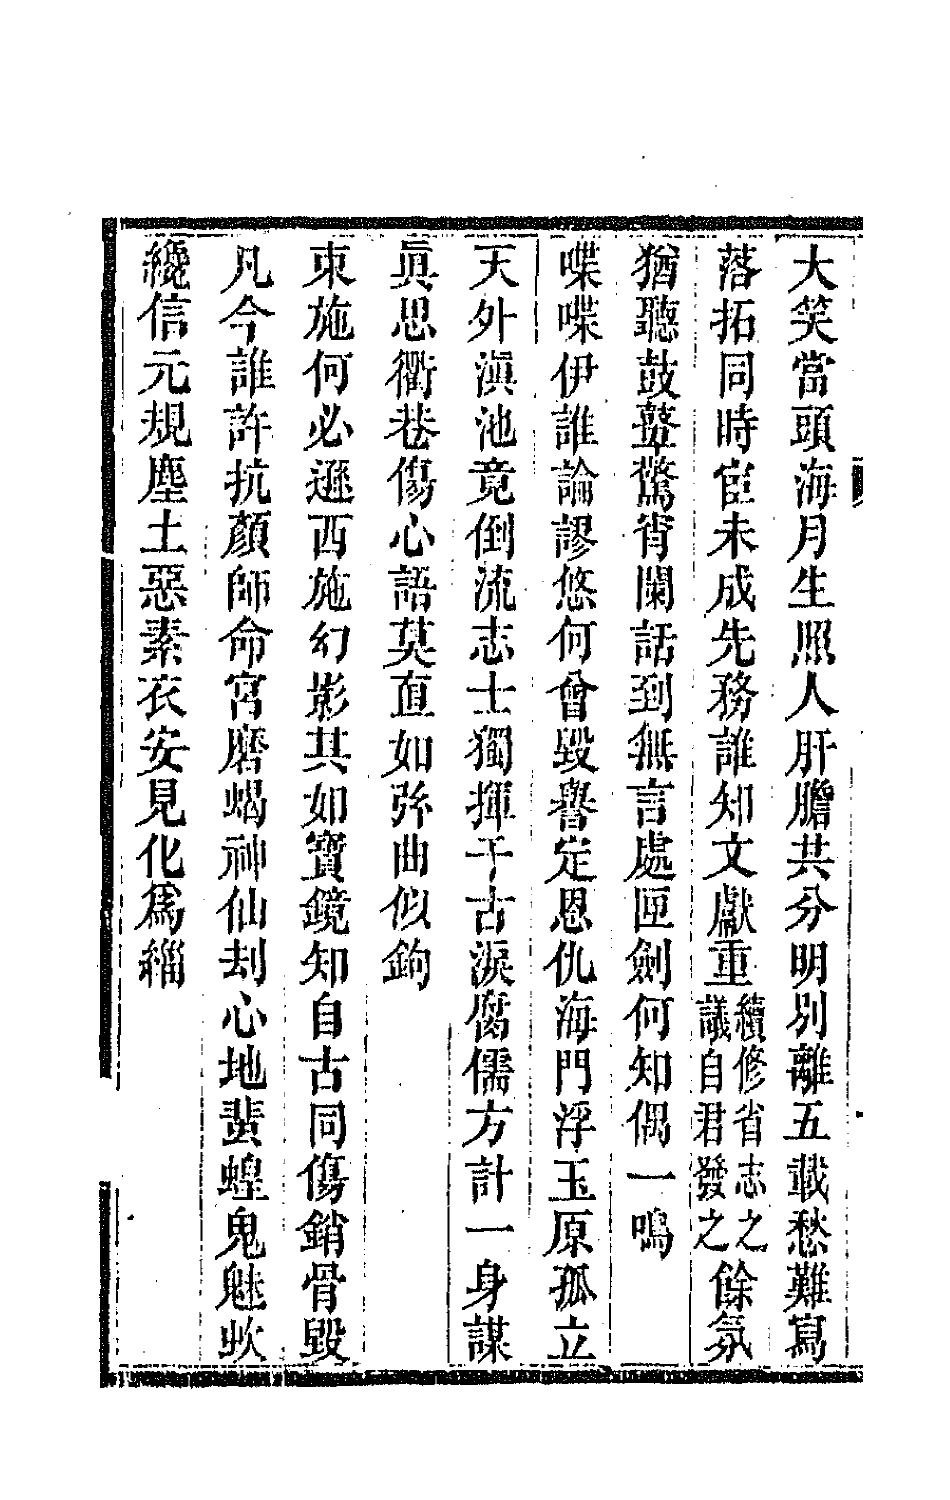 大笑當頭海月生照人肝膽共分明別離五載愁難寫
落拓同時宦未成先務誰知文獻重續修省志之議自君發之餘氛
猶聽鼓鼙驚宵闌話到無言處匣劍何知偶一鳴
喋喋伊誰論謬悠何曾毀譽定恩仇海門浮玉原孤立
天外滇池竟倒流志士獨揮千古淚腐儒方計一身謀
眞思衢巷傷心語莫直如弦曲似鉤
東施何必遜西施幻影其如寶鏡知自古同傷銷骨毀
凡今誰許抗顏師命宮磨蝎神仙刦心地蜚蝗鬼魅蚘
纔信元規塵土惡素衣安見化爲緇